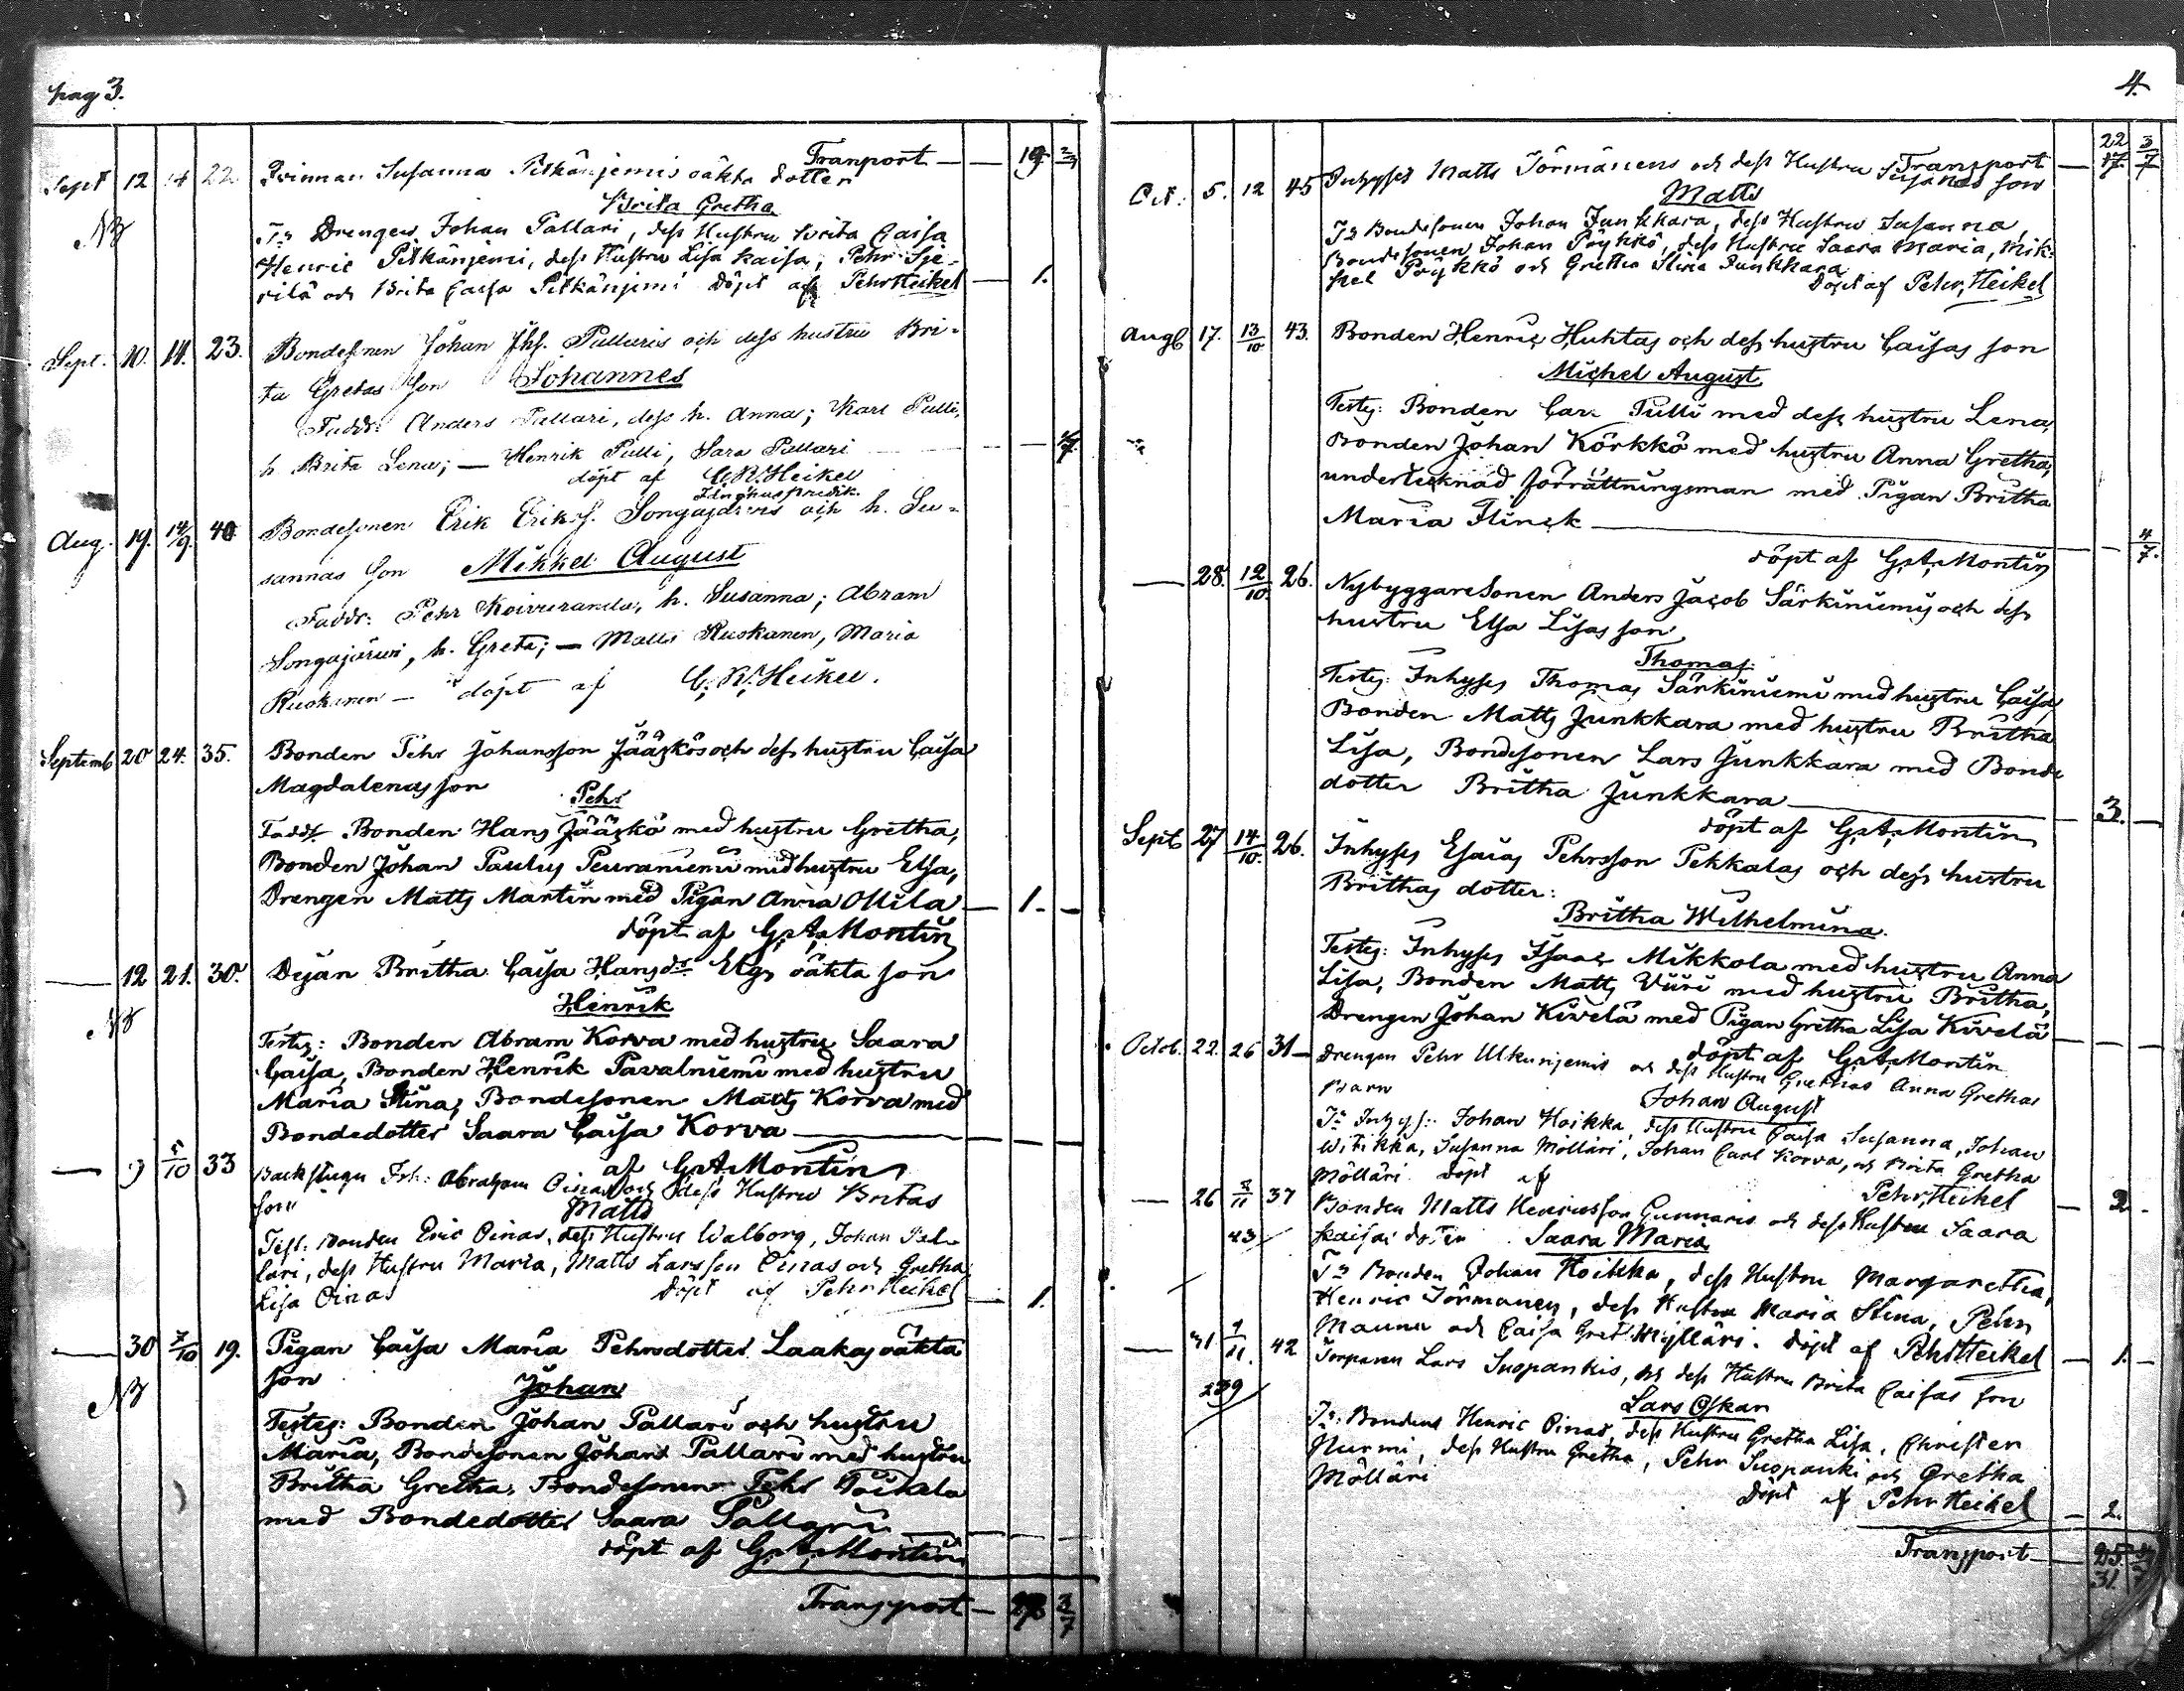 pag 3.
Tranport — — 19 2/7
Sept 12 14 22 Qvinnan Susanna Pitkänjemis oäkta dotter
Brita Gretha
NB
Ts Drengen Johan Pallari, dess Hustru Brita Caisa
Henric Pitkänjemi, dess Hustru Lisa Kaisa, Pehr Sie-
rilä och Brita Caisa Pitkänjemi döpt af Pehr Heikel — 1.
Sept. 10. 11. 23. Bondesonen Johan Jhs. Pallaris och dess hustru Bri-
ta Gretas son Johannes
Faddr: Anders Pallari, dess h. Anna; Karl Pulli,
h Brita Lena; — Henrik Pulli, Sara Pallari — 1/7.
döpt af C. R. Heikel
Aug. 19. 14/9. 40 Bondesonen Erik Eriks. Songajärvis och h. Su-
sannas son Mikkel August
Faddr: Pehr Koivuranta, h. Susanna; Abram
Songajärvi, h. Greta; — Matts Ruokanen, Maria
Ruokanen — döpt af C. R. Heikel.
Septemb 20 24. 35. Bonden Pehr Johansson Jääskös och dess hustru Caisa
Magdalenas son
Pehr
Fadd. Bonden Hans Jääskö med hustru Gretha,
Bonden Johan Paulus Peuraniemi med hustru Elsa,
Drengen Matts Martin med Pigan Anna Ollila — 1. —
döpt af G. A. Montin
— 12 21. 30. Dejan Britha Caisa Hansdr Elgs oäkta son
Henrik
NB
Testes: Bonden Abram Korva med hustru Saara
Caisa, Bonden Henrik Pavalniemi med hustru
Maria Stina, Bondesonen Matts Korva med
Bondedotter Saara Caisa Korva — — —
af G. A. Montin
— 9 5/10 33 Backstugu Joh: Abraham Oinas och dess Hustru Britas
son Matts
Test: Bonden Eric Oinas, dess Hustru Walborg, Johan Pal-
lari, dess Hustru Maria, Matts Larsson Oinas och Gretha
Lisa Oinas döpt af Pehr Heikel — 1.
— 30 7/10 19. Pigan Caisa Maria Pehrsdotter Laakas oäkta
son Johan
NB
Testes: Bonden Johan Pallari och hustru
Maria, Bondesonen Johan Pallari med hustru
Britha Gretha, Bondesonen Pehr
med Bondedotter Saara Pallari — — —
döpt af G. A. Montin
Transport — 3/7
4.
Transport — 22 17. 3/7
Oct. 5. 12 45 Inhyses Matts Törmänens och dess Hustru Susannas son
Matts
Ts Bondesonen Johan Junkkara, dess Hustru Susanna,
Bondesonen Johan Pöykkö, dess Hustru Saara Maria, Mik-
kel Pöykkö och Gretha Stina Junkkara
döpt af Pehr Heikel
Aug 17. 13/10 43. Bonden Henric Huhtas och dess hustru Caisas son
Michel August
Testes: Bonden Carl Pulli med dess hustru Lena,
Bonden Johan Körkkö med hustru Anna Gretha,
undertecknad förrättningsman med Pigan Britha
Maria Flinck — — 4/7.
döpt af G. A. Montin
— 28. 12/10. 26. Nybyggaresonen Anders Jacob Särkiniemis och dess
hustru Elsa Lisas son
Thomas.
Testes: Inhyses Thomas Särkiniemi med hustru Caisa,
Bonden Matts Junkkara med hustru Britha
Lisa, Bondesonen Lars Junkkara med Bonde
dotter Britha Junkkara — 3. —
döpt af G. A. Montin
Sept 27 14/10. 26. Inhyses Esaias Pehrsson Pekkalas och dess hustru
Brithas dotter:
Britha Wilhelmina.
Testes: Inhyses Isaac Mikkola med hustru Anna
Lisa, Bonden Matts Viiri med hustru Britha,
Drengen Johan Kivelä med Pigan Gretha Lisa Kivelä — — —
döpt af G. A. Montin
Octob. 22. 26 31 — Drengen Pehr Ulkunjemis och dess Hustru Grethas Anna Grethas
Barn Johan August
Ts Inhys: Johan Hoikka, dess Hustru Caisa Susanna, Johan
Witikka, Susanna Mölläri, Johan Carl Korva, och Brita Gretha
Mölläri döpt af
Pehr Heikel — 2 —
— 26 2/11 37 Bonden Matts Henricsson Gunnaris och dess Hustru Saara
43 Kaisas dotter Saara Maria
Ts Bonden Johan Hoikka, dess Hustru Margaretha,
Henric Törmänen, dess Hustru Maria Stina, Pehr
Maunu och Caisa Gret. Mylläri. döpt af Pehr Heikel — 1. —
— 31 1/11. 42 Torparen Lars Suopankis, och dess Hustru Brita Caisas son
239
Lars Oskar
Ts. Bondens Henric Oinas, dess Hustru Gretha Lisa, Christer
Nurmi, dess Hustru Gretha, Pehr Suopanki och Gretha
Mölläri
döpt af Pehr Heikel — 2.
Transport — 25. 31.